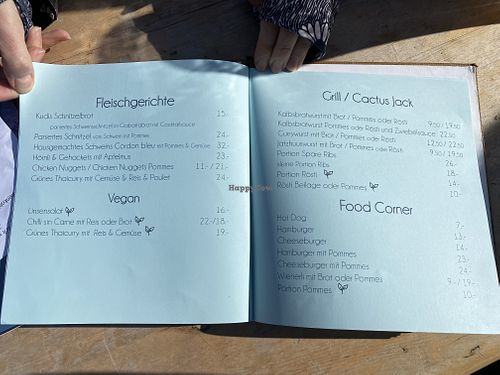 Fleischgerichte
Kudis Schnitzelbrot 15.-
paniertes Schweinsschnitzel im Ciabattabrot mit Cocktailsauce
Paniertes Schnitzel vom Schwein mit Pommes 24.-
Hausgemachtes Schweins Cordon bleu mit Pommes & Gemüse 32.-
Hörnli & Gehacktets mit Apfelmus 23.-
Chicken Nuggets / Chicken Nuggets Pommes 11.- / 21.-
Grünes Thaicurry mit Gemüse & Reis & Poulet 24.-
Vegan
Linsensalat 16.-
Chilli sin Carne mit Reis oder Brot 22.-/18.-
Grünes Thaicurry mit Reis & Gemüse 19.-
Grill / Cactus Jack
Kalbsbratwurst mit Brot / Pommes oder Rösti 9.50 / 19.50
Kalbsbratwurst Pommes oder Rösti und Zwiebelsauce 22.50
Currywurst mit Brot / Pommes oder Rösti 12.50 / 22.50
Jatzhauswurst mit Brot / Pommes oder Rösti 9.50 / 19.50
Portion Spare Ribs 26.-
kleine Portion Ribs 18.-
Portion Rösti 14.-
Rösti Beilage oder Pommes 10.-
Food Corner
Hot Dog 7.-
Hamburger 13.-
Cheeseburger 14.-
Hamburger mit Pommes 23.-
Cheeseburger mit Pommes 24.-
Wienerli mit Brot oder Pommes 9.- / 19.-
Portion Pommes 10.-
Happy Cow